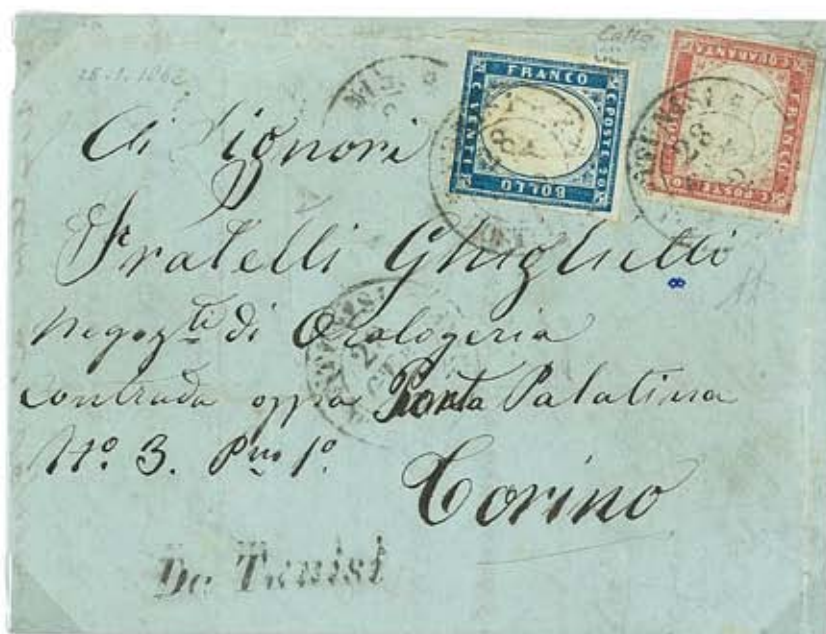 25.1.1862
FRANCO
C. POSTE 20
BOLLO
C. VENTI
C. QUARANTA
FRANCO
C. POSTE 40
28
28
Ai Signori
Fratelli Ghiglietti
Negoz.ti di Orologeria
contrada oppa Porta Palatina
N.º 3. P.no 1.º
Torino
Da Tunisi